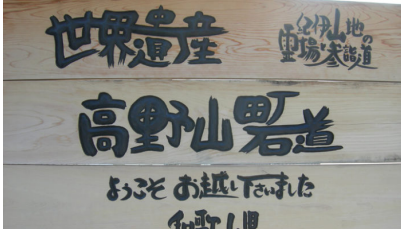 世界遺産
紀伊山地の
霊場と参詣道
高野山町石道
ようこそ お越し下さいました
和歌山県